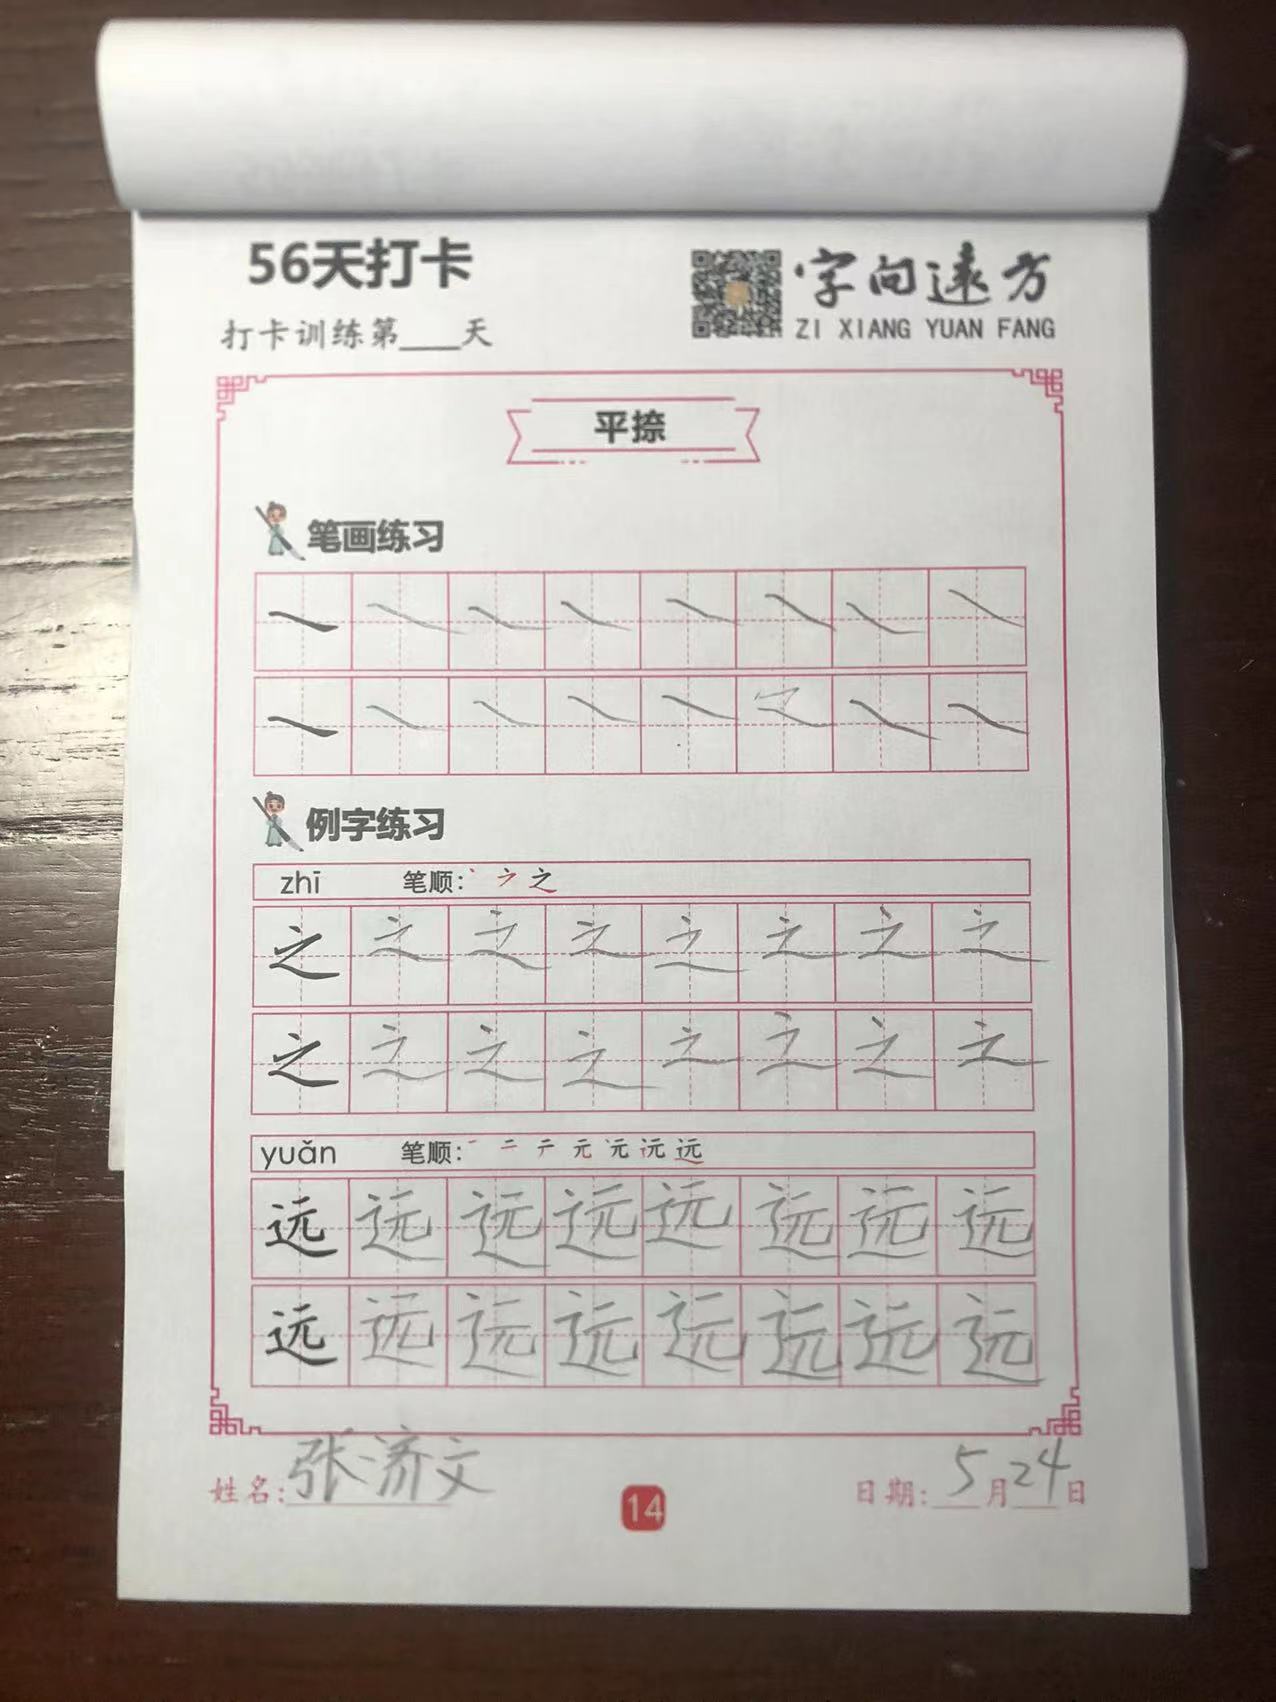 56天打卡
字向遠方
打卡训练第___天
ZI XIANG YUAN FANG
平捺
笔画练习
例字练习
zhī 笔顺： 之
之 之 之 之 之 之 之 之
之 之 之 之 之 之 之 之
yuǎn 笔顺： 一 二 亍 元 远
远 远 远 远 远 远 远 远
远 远 远 远 远 远 远 远
姓名：张济文
14
日期：5月24日